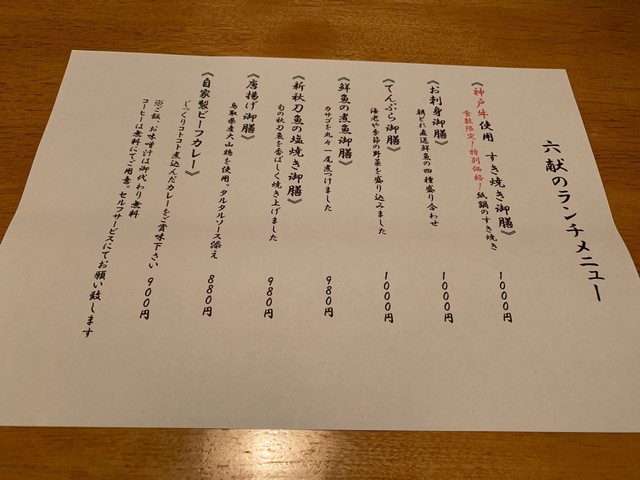 六献のランチメニュー
《神戸牛使用 すき焼き御膳》 1000円
食数限定!特別価格!紙鍋のすき焼き
《お刺身御膳》 1000円
朝どれ直送鮮魚の四種盛り合わせ
《てんぷら御膳》 1000円
海老や季節の野菜を盛り込みました
《鮮魚の煮魚御膳》 980円
カサゴを丸々一尾煮つけました
《新秋刀魚の塩焼き御膳》 980円
旬の秋刀魚を香ばしく焼き上げました
《唐揚げ御膳》 880円
鳥取県産大山鶏を使用。タルタルソース添え
《自家製ビーフカレー》 900円
じっくりコトコト煮込んだカレーをご賞味下さい
※ご飯、お味噌汁は御代わり無料
コーヒーは無料にてご用意。セルフサービスにてお願い致します